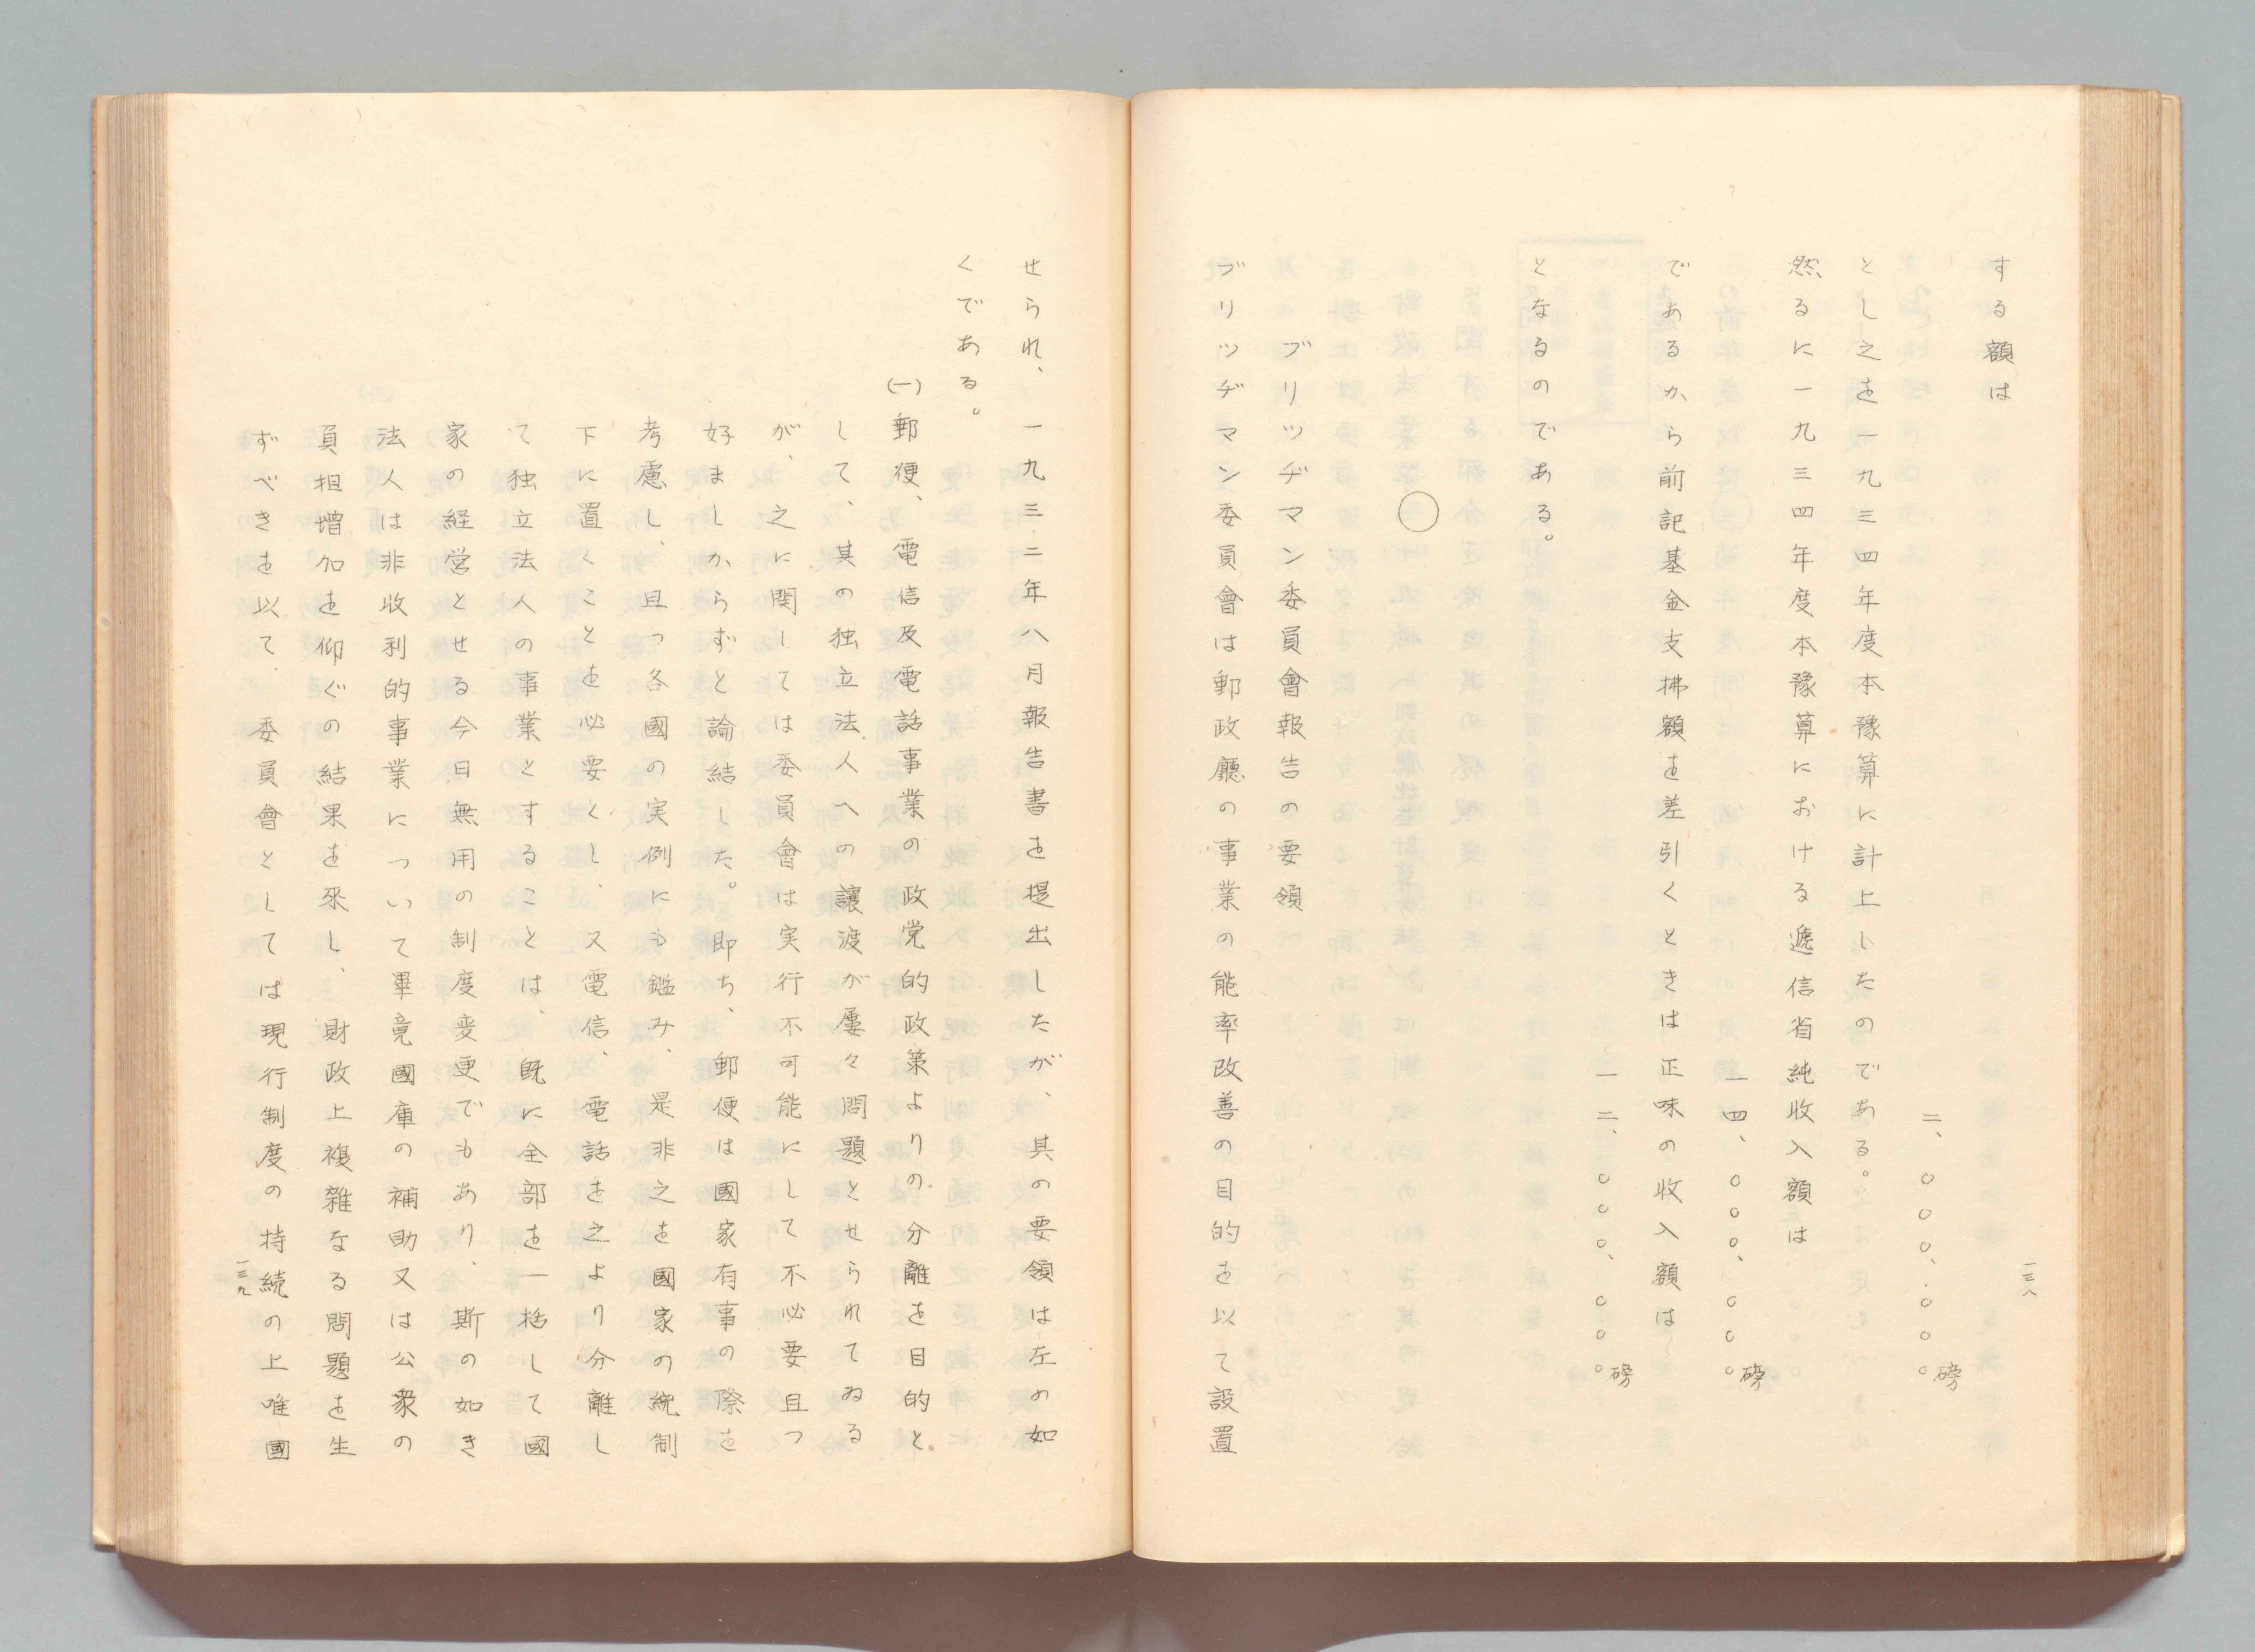 一三八
する額は
二、〇〇〇、〇〇〇磅
とし之を一九三四年度本豫算に計上したのである。
然るに一九三四年度本豫算における逓信省純收入額は
一四、〇〇〇、〇〇〇磅
であるから前記基金支拂額を差引くときは正味の收入額は
一二、〇〇〇、〇〇〇磅
となるのである。
〇
ブリッヂマン委員會報告の要領
ブリッヂマン委員會は郵政廳の事業の能率改善の目的を以て設置
せられ、一九三二年八月報告書を提出したが、其の要領は左の如
くである。
(一)郵便、電信及電話事業の政党的政策よりの分離を目的と
して、其の独立法人への讓渡が屢々問題とせられてゐる
が、之に関しては委員會は実行不可能にして不必要且つ
好ましからずと論結した。即ち、郵便は國家有事の際を
考慮し、且つ各國の実例にも鑑み、是非之を國家の統制
下に置くことを必要とし、又電信、電話を之より分離し
て独立法人の事業とすることは、既に全部を一括して國
家の経営とせる今日無用の制度変更でもあり、斯の如き
法人は非收利的事業について畢竟國庫の補助又は公衆の
負担増加を仰ぐの結果を來し、財政上複雑なる問題を生
ずべきを以て、委員會としては現行制度の持続の上唯國
一三九